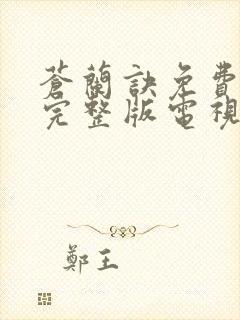 蒼蘭訣免費
完整版電視
鄭王